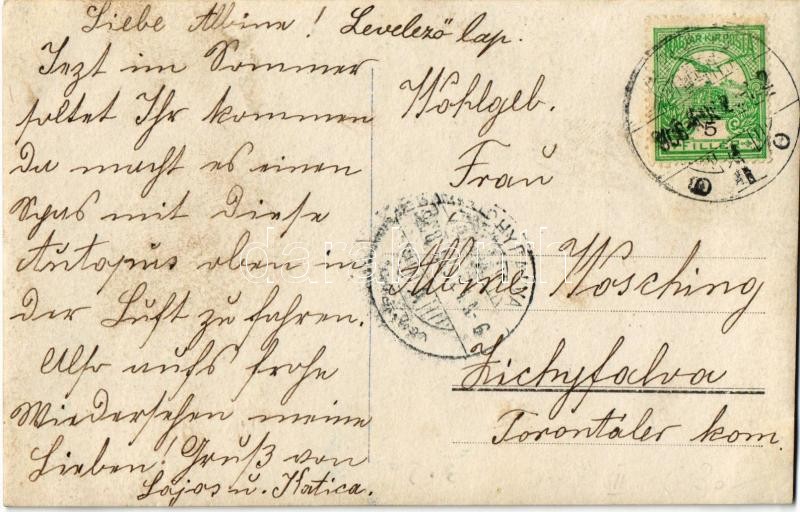 Liebe Albine! Levelező lap.
Jezt im Sommer
soltet Ihr kommen
Da macht es einen
Spas mit Diese
Autopus oben in
der Luft zu fahren.
Also aufs frohe
Wiedersehen meine
Lieben! Gruß von
Lajos u. Katica.
Wohlgeb.
Frau
Albine Wosching
Zichyfalva
Torontáler kom.
MAGYAR KIR. POSTA
5
FILLÉR
ZICHYFALVA